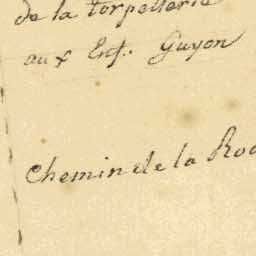 de la torpellerie
aux Enf. Guyon
Chemin de la Roc